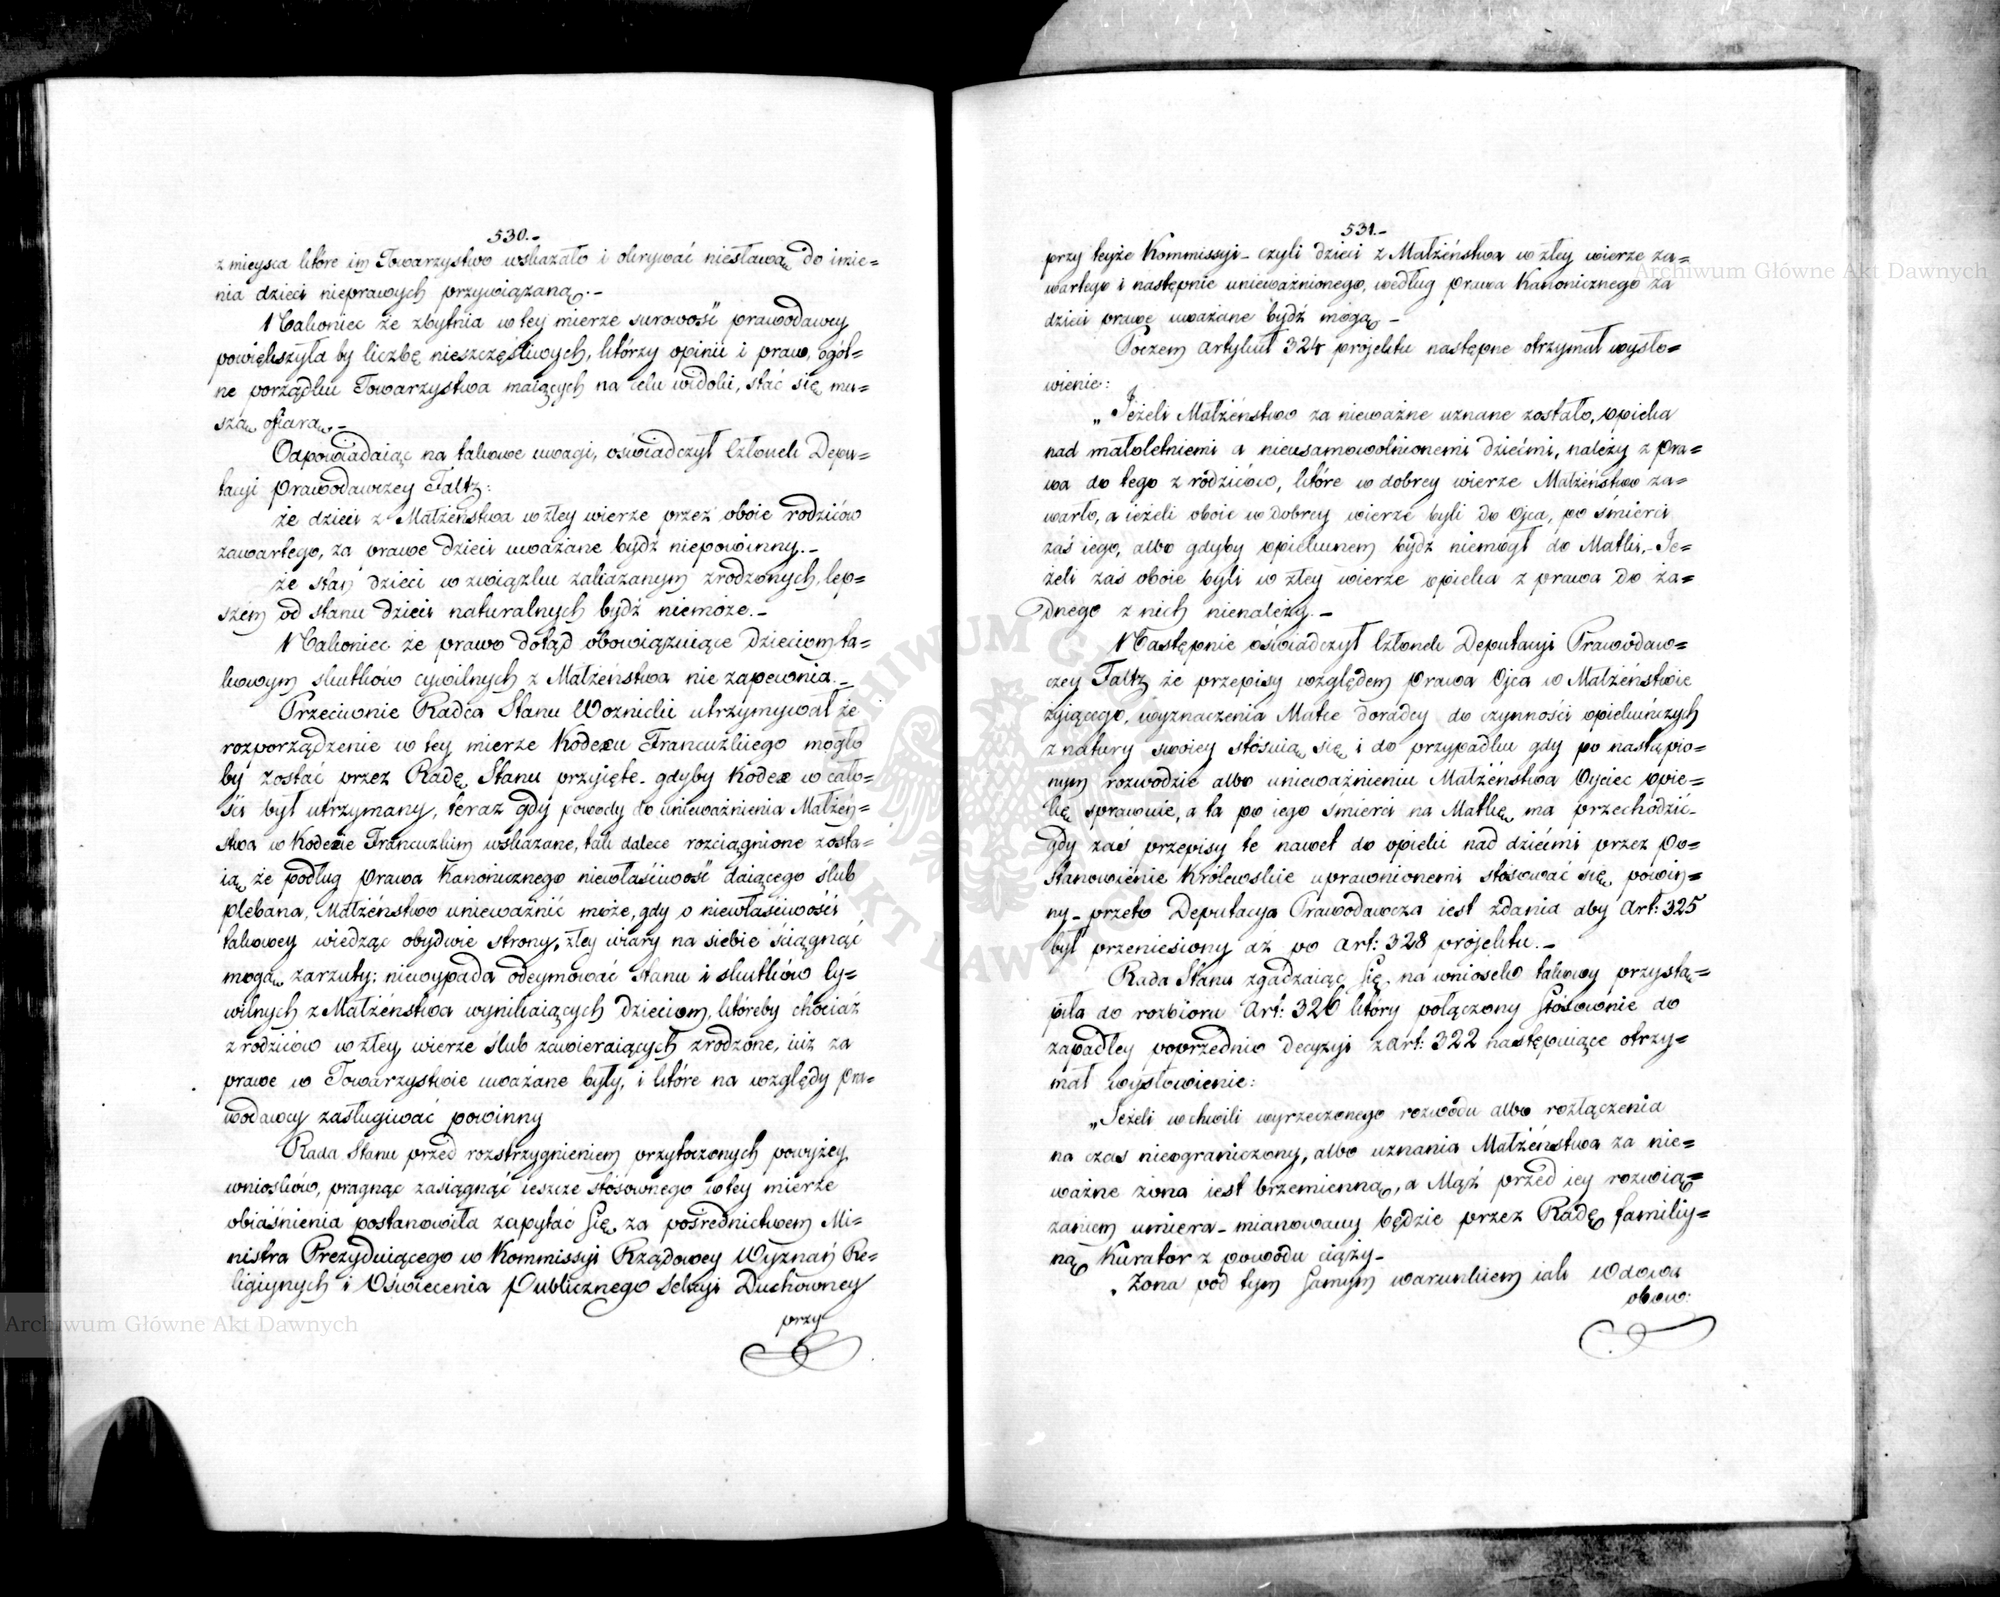 530.-
z mieysca które im Towarzystwo wskazało i okrywać niesławą do imie=
nia dzieci nieprawych przywiązaną.-
Nakoniec że zbytnia w tey mierze surowość prawodawcy
powiększyła by liczbę nieszczęśliwych, którzy opinii i praw, ogól=
ne porządku Towarzystwa maiących na celu widoki, stać się mu=
szą ofiarą.-
Odpowiadaiąc na takowe uwagi, oświadczył Członek Depu=
tacyi Prawodawczey Faltz:
że dzieci z Małżeństwa w złey wierze przez oboie rodziców
zawartego, za prawe dzieci uważane bydź niepowinny.-
że stan dzieci w związku zakazanym zrodzonych, lep=
szém od stanu dzieci naturalnych bydź niemoże.-
Nakoniec że prawo dotąd obowiązuiące dzieciom ta=
kowym skutków cywilnych z Małżeństwa nie zapewnia.-
Przeciwnie Radca Stanu Woznicki utrzymywał że
rozporządzenie w tey mierze Kodexu Francuzkiego mogło
by zostać przez Radę Stanu przyięte- gdyby Kodex w cało=
ści był utrzymany, teraz gdy powody do unieważnienia Małżeń=
stwa w Kodexie Francuzkim wskazane, tak dalece rozciągnione zosta=
ią, że podług Prawa Kanonicznego niewłaściwość daiącego ślub
plebana, Małżeństwo unieważnić może, gdy o niewłaściwości
takowey wiedząc obydwie strony, złey wiary na siebie ściągnąć
mogą zarzuty; niewypada odeymować Stanu i skutków Cy=
wilnych z Małżeństwa wynikaiących dzieciom, któreby chociaż
z rodziców w złey wierze ślub zawieraiących zrodzone, iuż za
prawe w Towarzystwie uważane były, i które na względy Pra=
wodawcy zasługiwać powinny
Rada Stanu przed rozstrzygnieniem przytoczonych powyżey
wniosków, pragnąc zasiągnąć ieszcze stosownego w tey mierze
obiaśnienia postanowiła zapytać się za pośrednictwem Mi=
nistra Prezyduiącego w Kommissyi Rządowey Wyznań Re=
ligiynych i Oświecenia Publicznego Sekcyi Duchowney
przy
531.-
przy teyże Kommissyi- czyli dzieci z Małżeństwa w złey wierze za=
wartego i następnie unieważnionego, według prawa Kanonicznego za
dzieci prawe uważane bydź mogą -
Poczem artykuł 324 projektu następne otrzymał wysło=
wienie:
„Jeżeli Małżeństwo za nieważne uznane zostało, opieka
nad małoletniemi a nieusamowolnionemi dziećmi, należy z pra=
wa do tego z rodziców, które w dobrey wierze Małżeństwo za=
warło, a ieżeli oboie w dobrey wierze byli do Ojca, po śmierci
zaś iego, albo gdyby opiekunem bydź niemógł do Matki.- Je=
żeli zaś oboie byli w złey wierze opieka z prawa do ża=
dnego z nich nienależy.-
Następnie oświadczył Członek Deputacyi Prawodaw=
czey Faltz że przepisy względem Prawa Ojca w Małżeństwie
żyiącego, wyznaczenia Matce doradcy do czynności opiekuńczych
z natury swoiey stosuią się i do przypadku gdy po nastąpio=
nym rozwodzie albo unieważnieniu Małżeństwa Oyciec opie=
kę sprawuie, a ta po iego śmierci na Matkę ma przechodzić-
gdy zaś przepisy te nawet do opieki nad dziećmi przez Po=
stanowienie Królewskie uprawnionemi stosować się powin=
ny- przeto Deputacya Prawodawcza iest zdania aby Art: 325
był przeniesiony aż po art: 328 projektu.-
Rada Stanu zgadzaiąc się na wniosek takowy przystą=
piła do rozbioru Art: 326 który połączony stosownie do
zapadłey poprzednio decyzyi z art: 322 następuiące otrzy=
mał wysłowienie:
„Jeżeli w chwili wyrzeczonego rozwodu albo rozłączenia
na czas nieograniczony, albo uznania Małżeństwa za nie=
ważne żona iest brzemienną, a Mąż przed iey rozwią=
zaniem umiera- mianowany będzie przez Radę familiy=
ną Kurator z powodu ciąży-
Żona pod tym samym warunkiem iak Wdowa
obow:
Archiwum Główne Akt Dawnych
Archiwum Główne Akt Dawnych